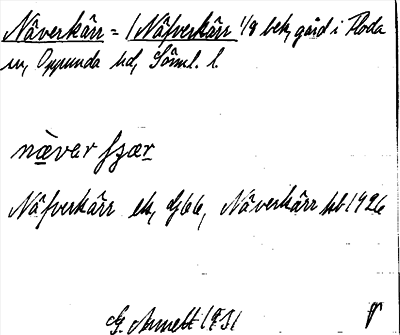 Näverkärr = /Näfverkärr 1/8 bek, gård i Floda
sn, Oppunda hd, Söml. l.
nævar
Näfverkärr ek, Näverkärr kb 1926
G. Annell 1931